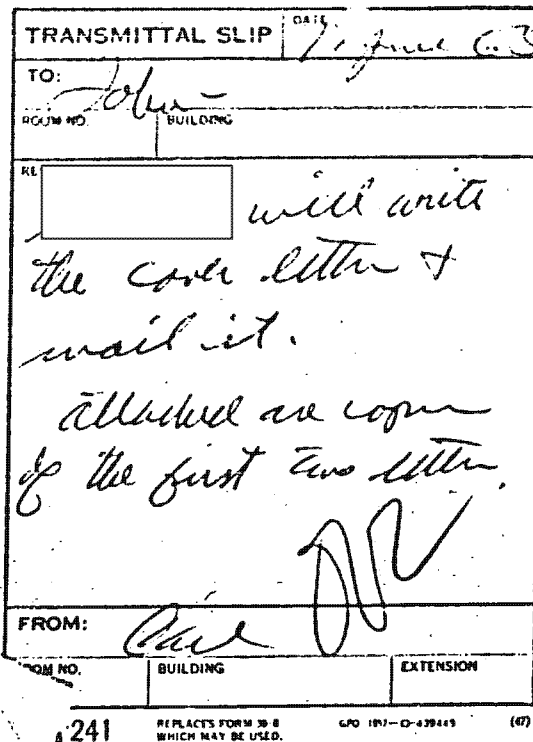 TRANSMITTAL SLIP
DATE
June 63
TO:
John
ROOM NO.
BUILDING
will write
the cover letter &
mail it.
Attached are copies
of the first two letters.
FROM:
ROOM NO.
BUILDING
EXTENSION
241
REPLACES FORM 36-8
WHICH MAY BE USED.
GPO
(47)